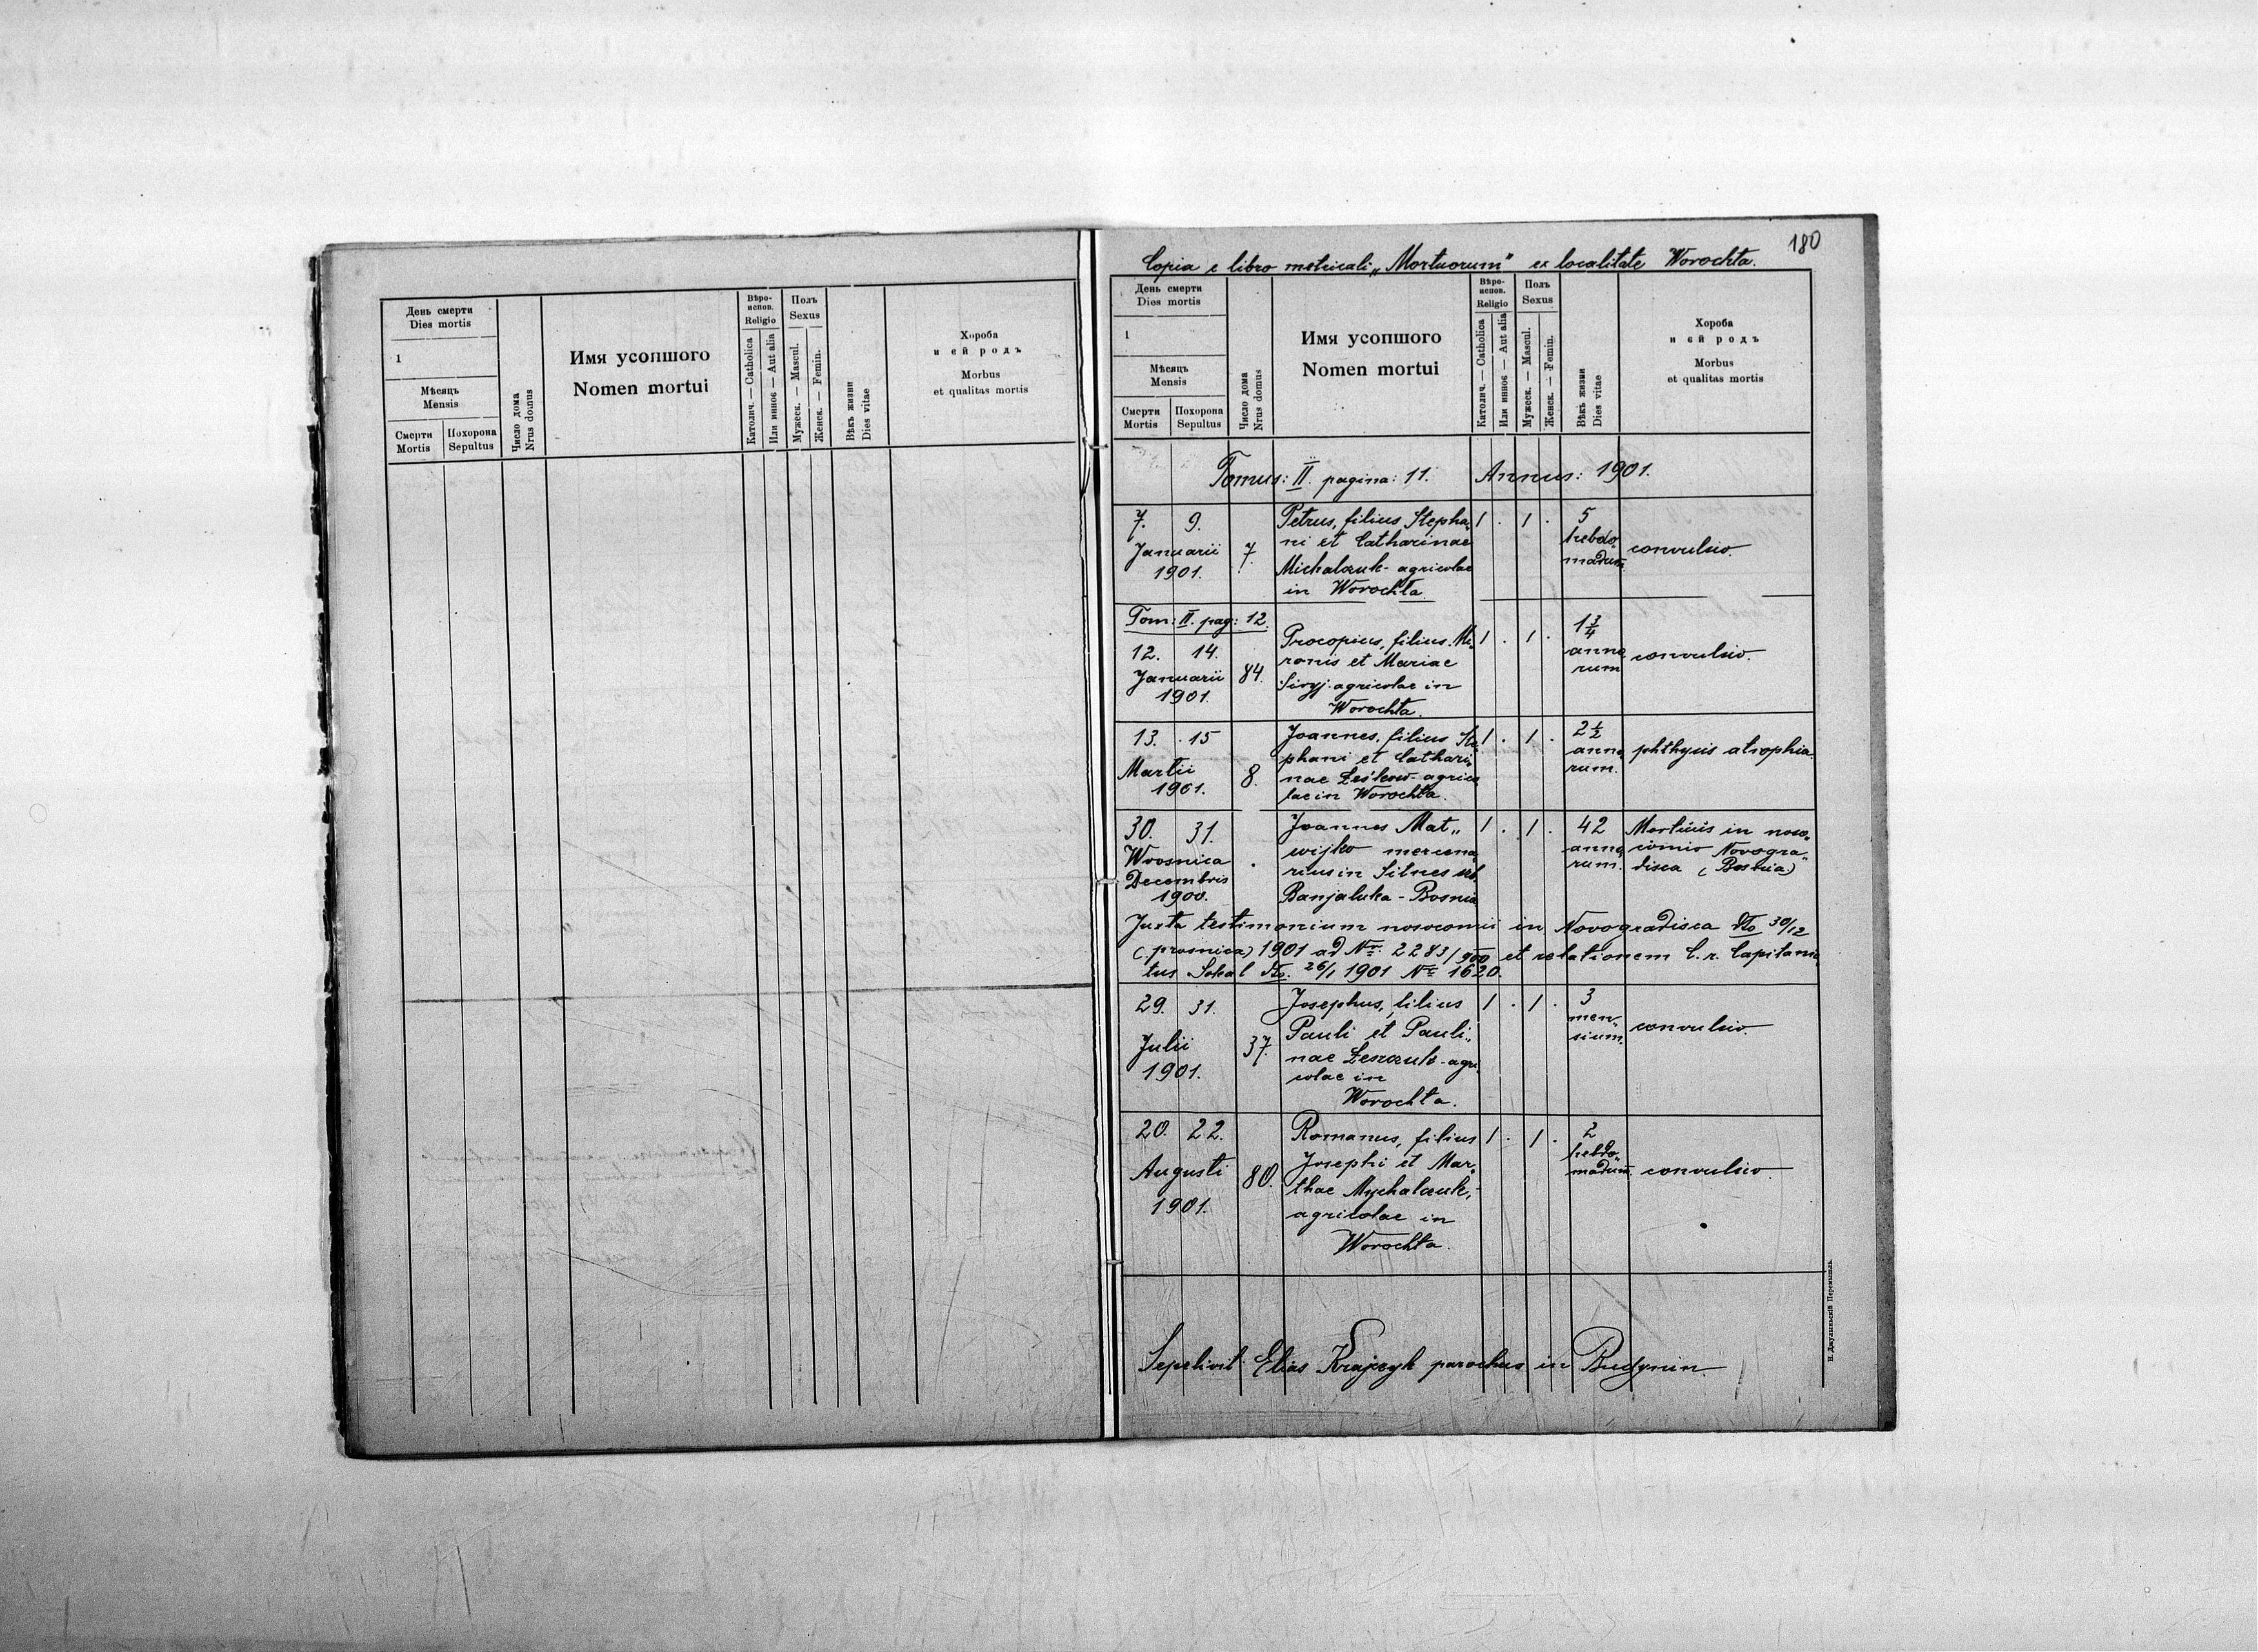 День смерти
Dies mortis
1
Мѣсяць
Mensis
Смерти
Mortis
Похорона
Sepultus
Число дома
Nrus domus
Имя усопшого
Nomen mortui
Вѣро-
испов.
Religio
Католич. — Catholica
Или инноє — Aut alia
Полъ
Sexus
Мужеск. — Mascul.
Женск. — Femin.
Вѣкъ жизни
Dies vitae
Хороба
и єй родъ
Morbus
et qualitas mortis
180
Copia e libro metricali „Mortuorum" ex localitate Worochta.
День смерти
Dies mortis
1
Мѣсяць
Mensis
Смерти
Mortis
Похорона
Sepultus
Число дома
Nrus domus
Имя усопшого
Nomen mortui
Вѣро-
испов.
Religio
Католич. — Catholica
Или инноє — Aut alia
Полъ
Sexus
Мужеск. — Mascul.
Женск. — Femin.
Вѣкъ жизни
Dies vitae
Хороба
и єй родъ
Morbus
et qualitas mortis
Tomus: II. pagina: 11. Annus: 1901.
7. 9.
Januarii
1901.
7.
Petrus, filius Stepha„
ni et Catharinae
Michalczuk - agricolae
in Worochta.
1 . 1 .
5
hebdo„
madum
convulsio.
Tom: II. pag: 12.
12. 14.
Januarii
1901.
84.
Procopius, filius Mi„
ronis et Mariae
agricolae in
Worochta.
1 . 1 .
1 3/4
anno
rum
convulsio.
13. 15
Martii
1901.
8.
Joannes, filius Ste„
phani et Cathari„
nae Leśkow - agrico
lae in Worochta.
1 . 1 .
2 1/2
anno
rum.
phthysis atrophia.
30. 31.
Decembris
1900.
.
Joannes Mat„
wijko mercena
rius in Sitnes
Banjaluka - Bosnia
1 . 1 .
42
anno
rum.
Mortuus in noso„
comio Novogra„
disca (Bosnia)
Juxta testimonium nosocomii in Novogradisca dto 30/12
(prosnica) 1901 ad Nr. 2283/900 et relationem C. r. Capitana
tus Sokal dto. 26/1 1901 Nr 1620.
29. 31.
Julii
1901.
37.
Josephus, filius
Pauli et Pauli„
nae - agri
colae in
Worochta.
1 . 1 .
3
men„
sium.
convulsio.
20. 22.
Augusti
1901.
80.
Romanus, filius
Josephi et Mar„
thae Mychalczuk,
agricolae in
Worochta.
1 . 1 .
2
hebdo„
madum.
convulsio.
Sepelivit Elias Krajczyk parochus in Budynin.